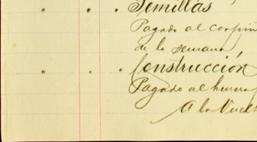 Semillas
Pagado al carpin
de la semana,
Construcción
Pagado al herre
A la Vuel